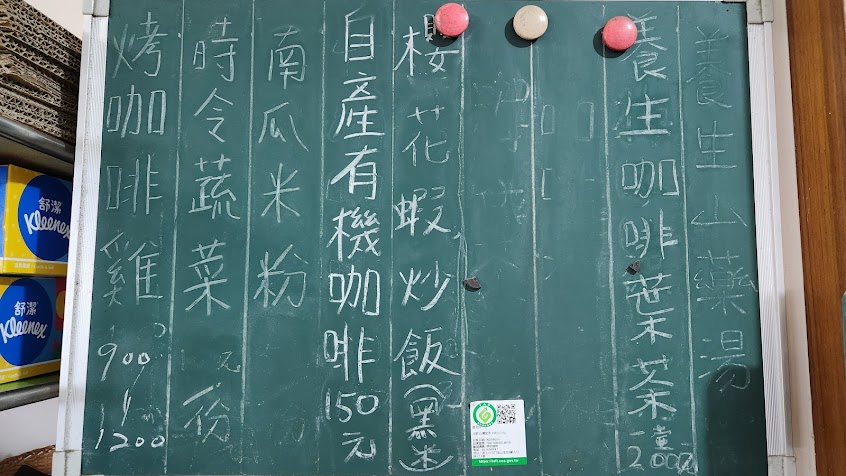 養生山藥湯
養生咖啡葉茶一壼200元
櫻花蝦,炒飯(黑米)
自產有機咖啡150元
南瓜米粉
時令蔬菜 元一份
烤咖啡雞 900 1200
舒潔
Kleenex
舒潔
Kleenex